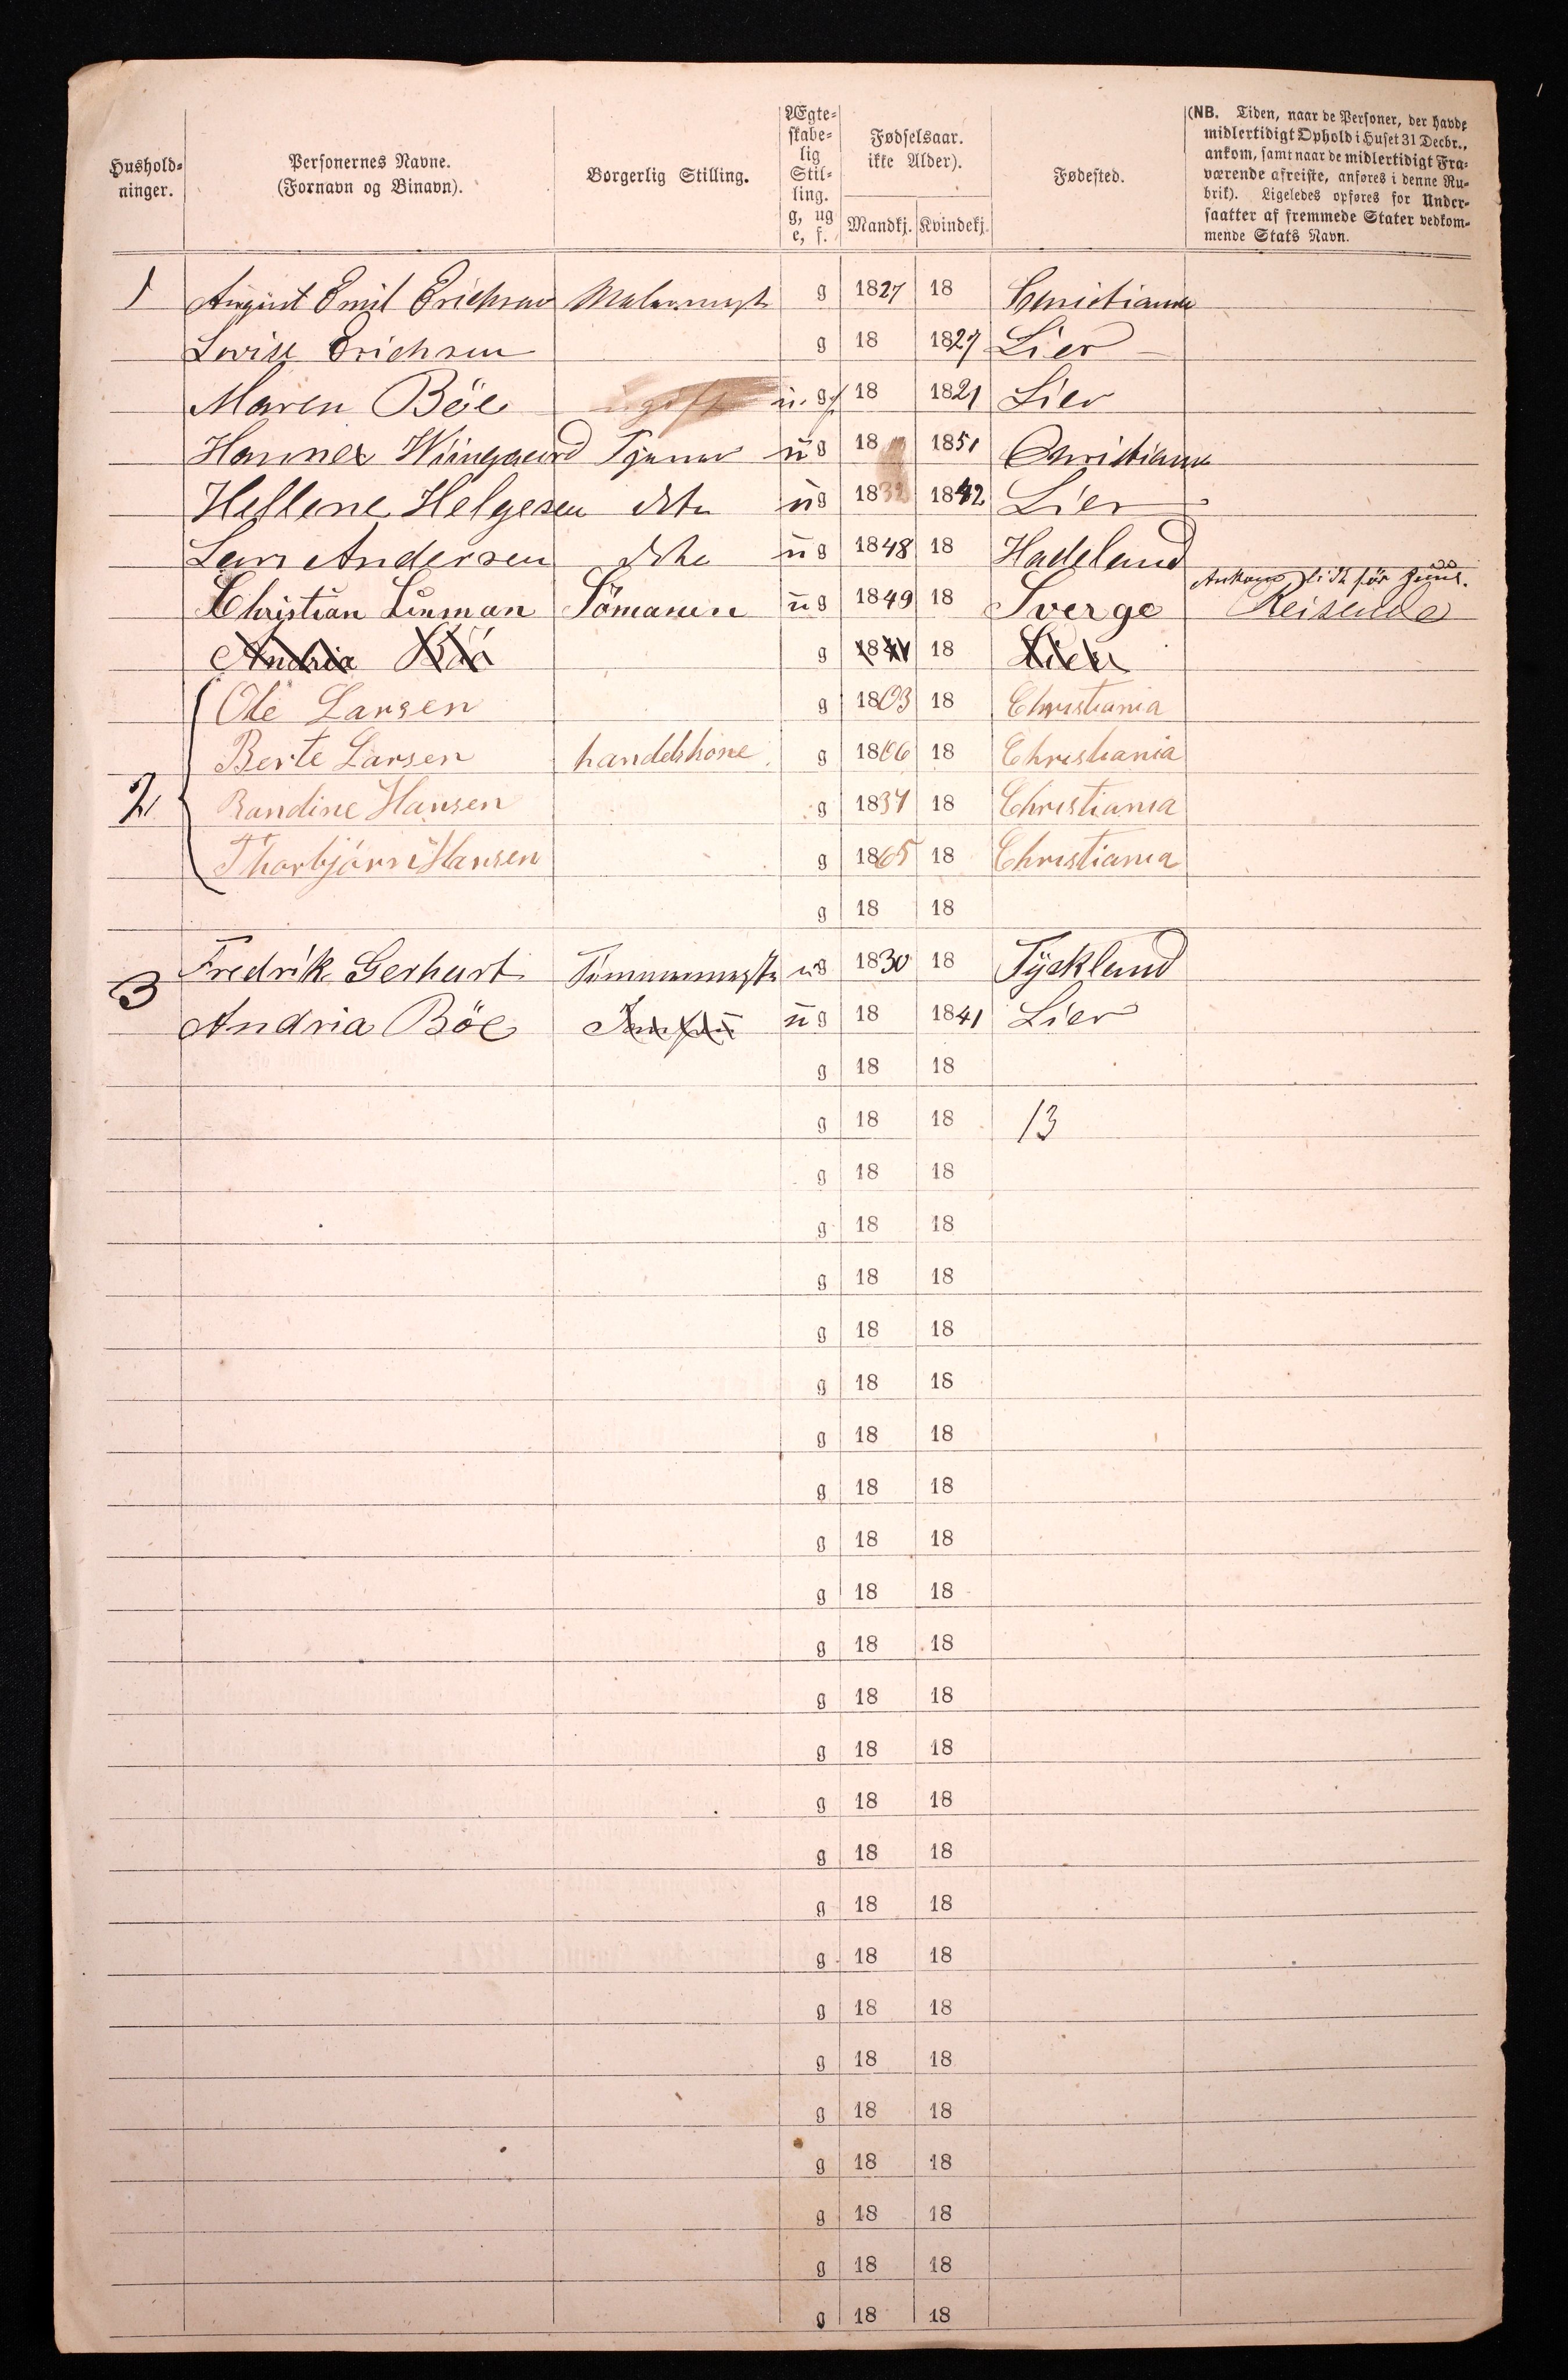 Hushold-
ninger.
Personernes Navne.
(Fornavn og Binavn).
Borgerlig Stilling.
Ægte-
skabe-
lig
Stil-
ling.
g, ug
e, f.
Fødselsaar.
ikke Alder).
Mandkj. Kvindekj.
Fødested.
(NB. Tiden, naar de Personer, der havde
midlertidigt Ophold i Huset 31 Decbr.,
ankom, samt naar de midlertidigt Fra-
værende afreiste, anføres i denne Ru-
brik). Ligeledes opføres for Under-
saatter af fremmede Stater vedkom-
mende Stats Navn.
1 August Emil Erichsen g 1827 18 Christiania
Lovise Erichsen g 18 1827 Lier
Maren Böe ugift u. g 18 1821 Lier
Hanne Wiingaard Tjener ug 18 1851 Christiania
Hellene Helgesen dto ug 18 1842 Lier
Lars Andersen dto ug 1848 18 Hadeland
Ankom lidt för Juul.
Christian Linman Sömann ug 1849 18 Sverge Reisende
Andria Böe g 1841 18 Lier
Ole Larsen g 1803 18 Christiania
Berte Larsen handelskone g 1806 18 Christiania
2 Randine Hansen g 1834 18 Christiania
Thorbjörn Hansen g 1865 18 Christiania
g 18 18
3 Fredrik Gerhart ug 1830 18 Tyskland
Andria Böe ug 18 1841 Lier
g 18 18
g 18 18 13
g 18 18
g 18 18
g 18 18
g 18 18
g 18 18
g 18 18
g 18 18
g 18 18
g 18 18
g 18 18
g 18 18
g 18 18
g 18 18
g 18 18
g 18 18
g 18 18
g 18 18
g 18 18
g 18 18
g 18 18
g 18 18
g 18 18
g 18 18